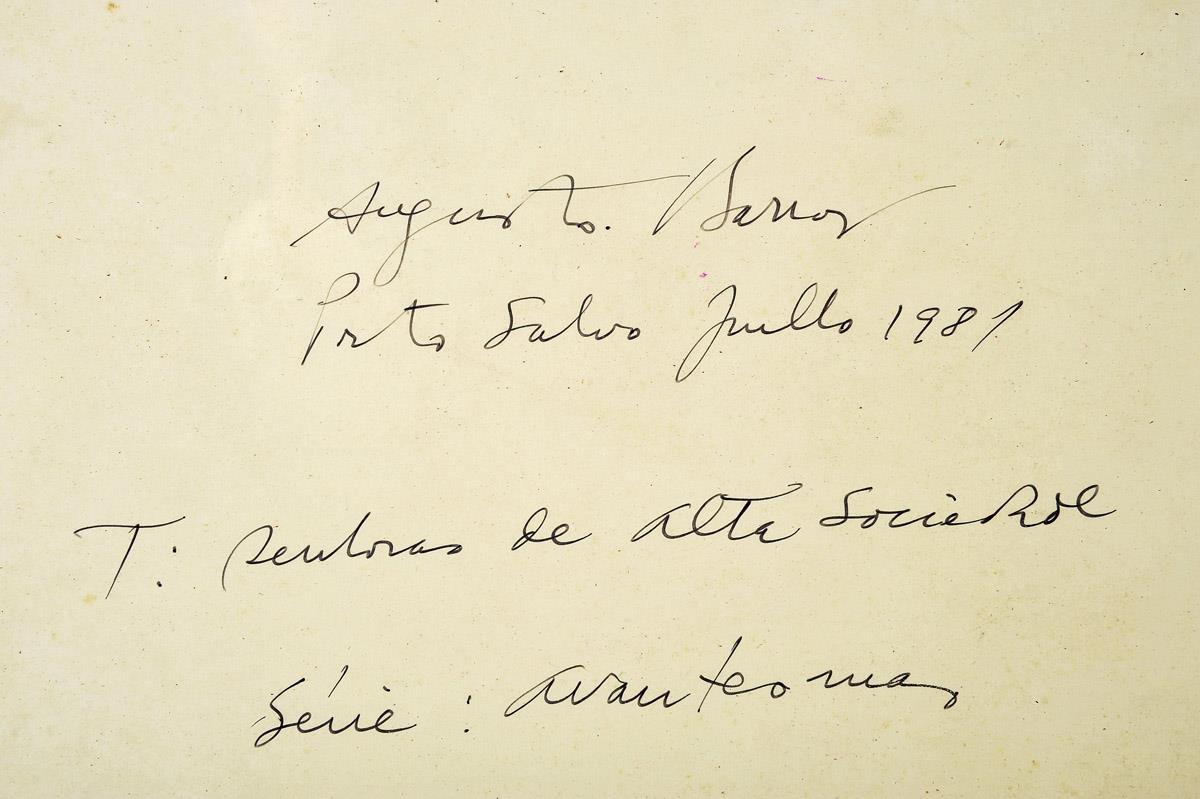 Augusto. Barros
Porto Salvo Julho 1981
T: senhoras de Alta Sociedade
Série : avantesmas